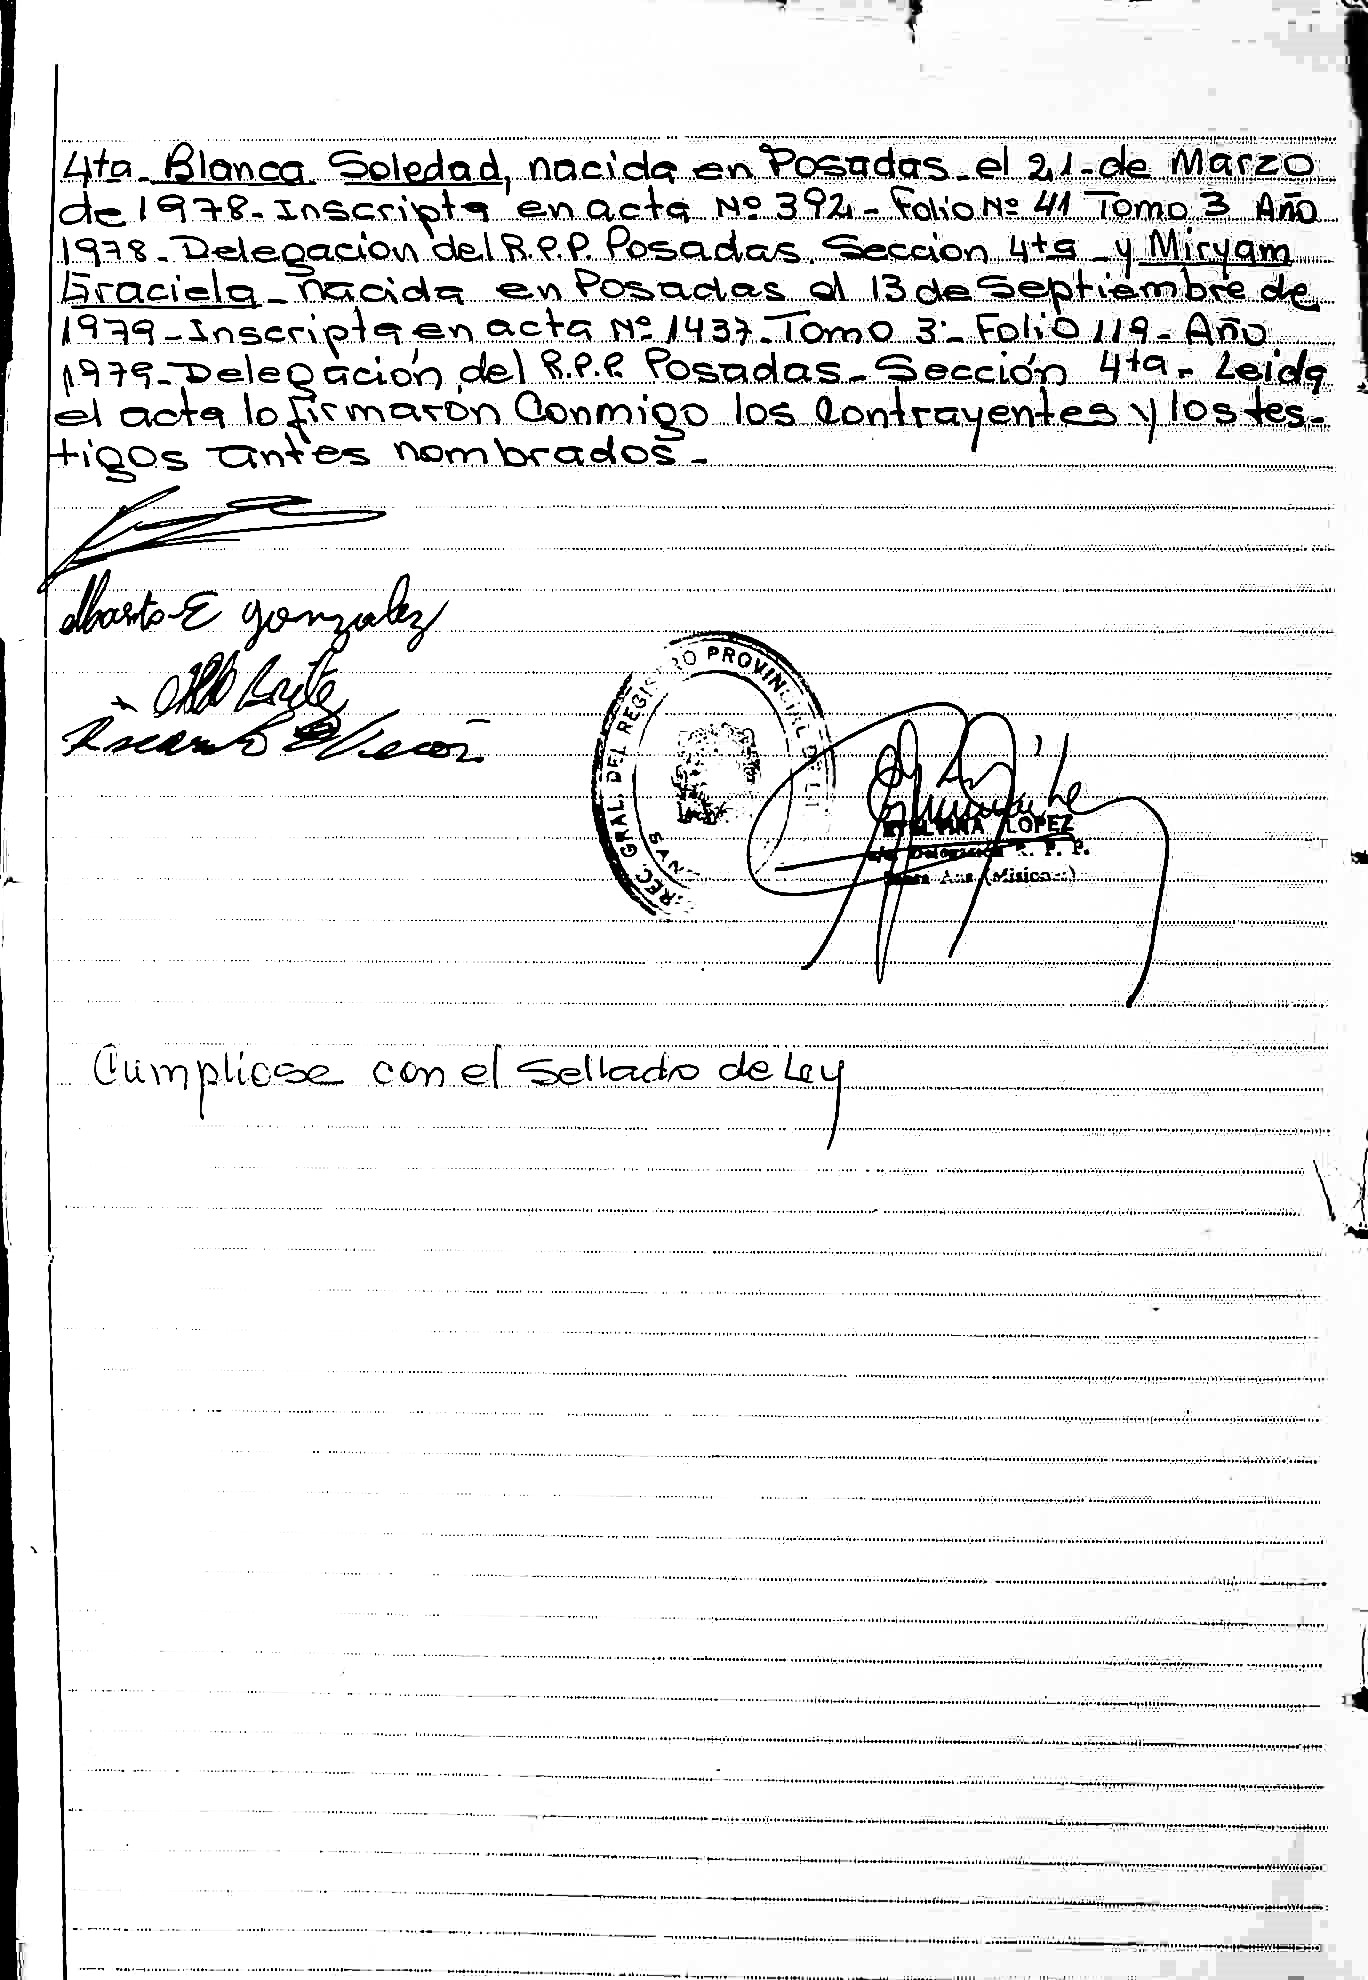 4ta. Blanca Soledad, nacida en Posadas. el 21. de Marzo
de 1978. Inscripta en acta Nº 392. Folio Nº 41 Tomo 3 Año
1978. Delegacion del R.P.P. Posadas. Seccion 4ta y Miryam
Graciela. nacida en Posadas el 13 de Septiembre de
1979. Inscripta en acta Nº 1437. Tomo 3: Folio 119. Año
1979. Delegación del R.P.P. Posadas. Sección 4ta. Leida
el acta lo firmarón Conmigo los Contrayentes y los tes-
tigos antes nombrados.
Alberto E gonzalez
REC. GRAL. DEL REGISTRO PROVINCIAL DE L
SAN
LOPEZ
Delegación R. P. P.
Ana (Misiones)
Cumpliose con el Sellado de Ley